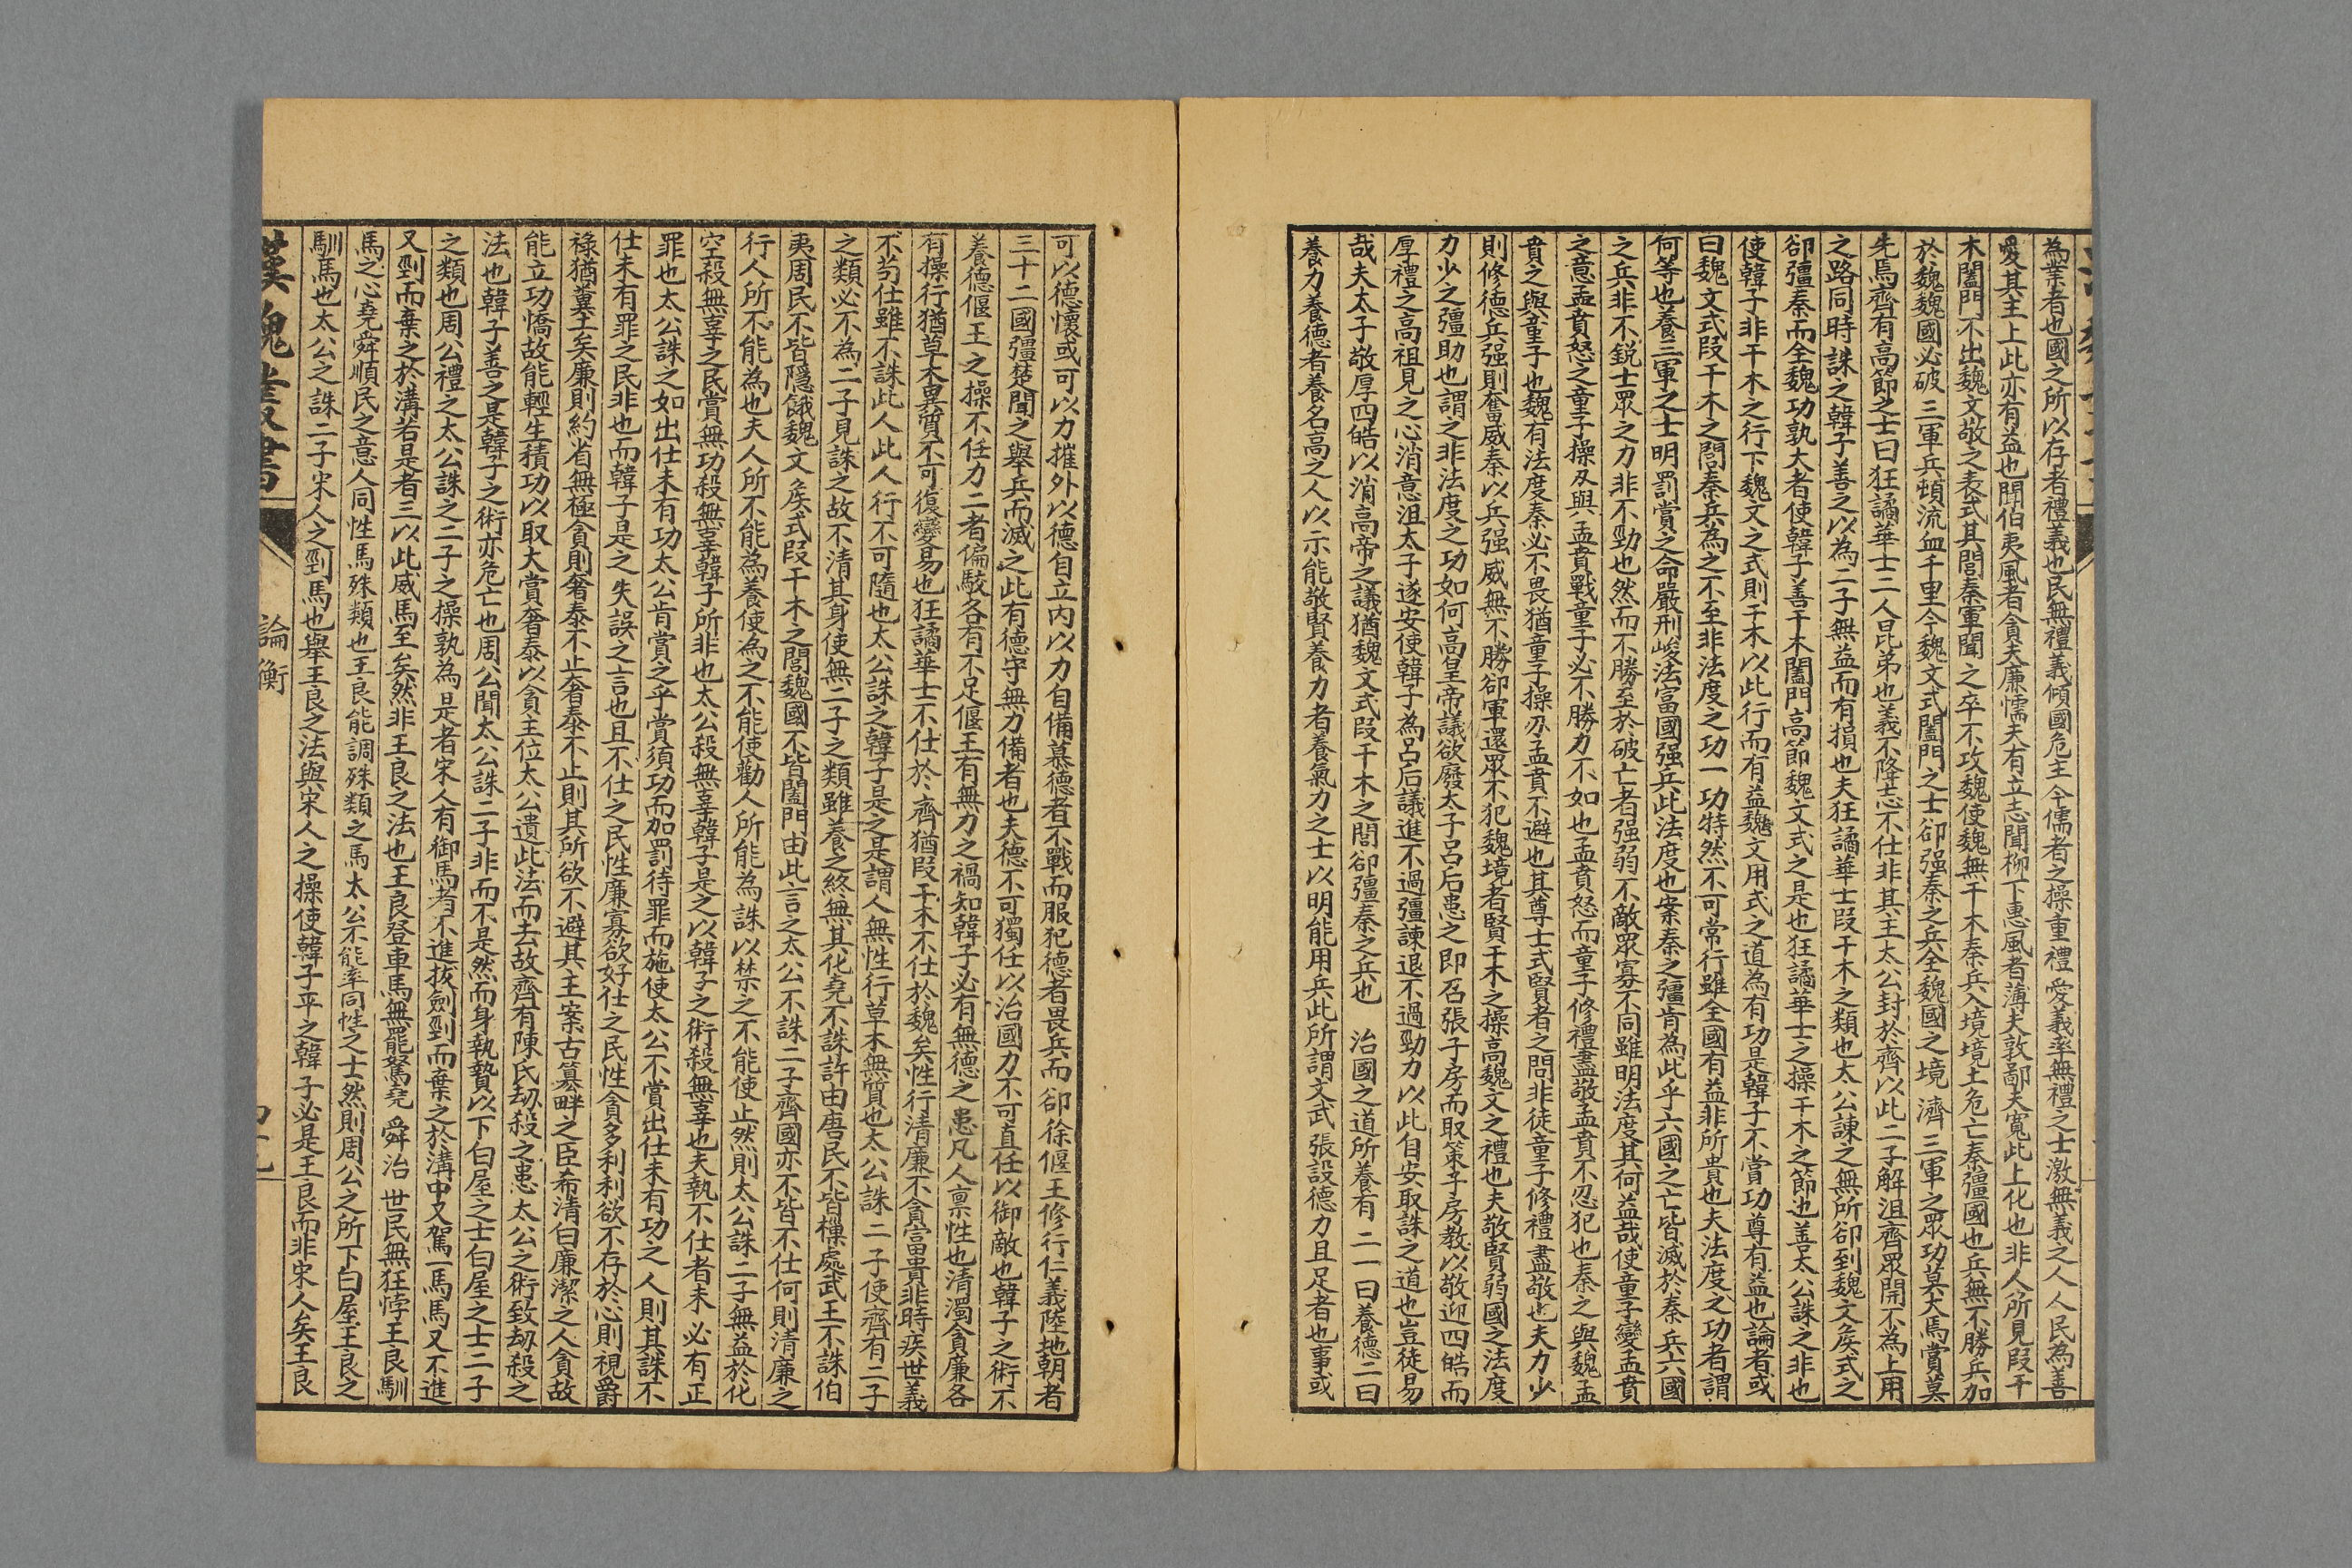 為業者也國之所以存者禮義也民無禮義傾國危主今儒者之操重禮愛義率無禮之士激無義之人人民為善
愛其主上此亦有益也聞伯夷風者貪夫廉懦夫有立志聞柳下惠風者薄夫敦鄙夫寬此上化也非人所見段干
木闔門不出魏文敬之表式其閭秦軍聞之卒不攻魏使魏無干木秦兵入境境土危亡秦彊國也兵無不勝兵加
於魏魏國必破三軍兵頓流血千里今魏文式闔門之士卻强秦之兵全魏國之境濟三軍之眾功莫大焉賞莫
先焉齊有高節之士曰狂譎華士二人昆弟也義不降志不仕非其主太公封於齊以此二子解沮齊眾開不為上用
之路同時誅之韓子善之以為二子無益而有損也夫狂譎華士段干木之類也太公誅之無所卻到魏文侯式之
卻彊秦而全魏功孰大者使韓子善干木闔門高節魏文式之是也狂譎華士之操干木之節也善太公誅之非也
使韓子非干木之行下魏文之式則干木以此行而有益魏文用式之道為有功是韓子不賞功尊有益也論者或
曰魏文式段干木之閭秦兵為之不至非法度之功一功特然不可常行雖全國有益非所貴也夫法度之功者謂
何等也養三軍之士明罰賞之命嚴刑峻法富國强兵此法度也案秦之彊肯為此乎六國之亡皆滅於秦兵六國
之兵非不銳士眾之力非不勁也然而不勝至於破亡者强弱不敵眾寡不同雖明法度其何益哉使童子變孟賁
之意孟賁怒之童子操刃與孟賁戰童子必不勝力不如也孟賁怒而童子修禮盡敬孟賁不忍犯也秦之與魏孟
賁之與童子也魏有法度秦必不畏猶童子操刃孟賁不避也其尊士式賢者之閭非徒童子修禮盡敬也夫力少
則修德兵强則奮威秦以兵强威無不勝卻軍還眾不犯魏境者賢干木之操高魏文之禮也夫敬賢弱國之法度
力少之彊助也謂之非法度之功如何高皇帝議欲廢太子呂后患之即召張子房而取策子房教以敬迎四皓而
厚禮之高祖見之心消意沮太子遂安使韓子為呂后議進不過彊諫退不過勁力以此自安取誅之道也豈徒易
哉夫太子敬厚四皓以消高帝之議猶魏文式段干木之閭卻彊秦之兵也　治國之道所養有二一曰養德二曰
養力養德者養名高之人以示能敬賢養力者養氣力之士以明能用兵此所謂文武張設德力且足者也事或
可以德懷或可以力摧外以德自立內以力自備慕德者不戰而服犯德者畏兵而卻徐偃王修行仁義陸地朝者
三十二國彊楚聞之舉兵而滅之此有德守無力備者也夫德不可獨任以治國力不可直任以御敵也韓子之術不
養德偃王之操不任力二者偏駮各有不足偃王有無力之禍知韓子必有無德之患凡人稟性也清濁貪廉各
有操行猶草木異質不可復變易也狂譎華士不仕於齊猶段干木不仕於魏矣性行清廉不貪富貴非時疾世義
不苟仕雖不誅此人此人行不可隨也太公誅之韓子是之是謂人無性行草木無質也太公誅二子使齊有二子
之類必不為二子見誅之故不清其身使無二子之類雖養之終無其化堯不誅許由唐民不皆樔處武王不誅伯
夷周民不皆隱餓魏文侯式段干木之閭魏國不皆闔門由此言之太公不誅二子齊國亦不皆不仕何則清廉之
行人所不能為也夫人所不能為養使為之不能使勸人所能為誅以禁之不能使止然則太公誅二子無益於化
空殺無辜之民賞無功殺無辜韓子所非也太公殺無辜韓子是之以韓子之術殺無辜也夫執不仕者未必有正
罪也太公誅之如出仕未有功太公肯賞之乎賞須功而加罰待罪而施使太公不賞出仕未有功之人則其誅不
仕未有罪之民非也而韓子是之失誤之言也且不仕之民性廉寡欲好仕之民性貪多利利欲不存於心則視爵
祿猶糞土矣廉則約省無極貪則奢泰不止奢泰不止則其所欲不避其主案古篡畔之臣希清白廉潔之人貪故
能立功憍故能輕生積功以取大賞奢泰以貪主位太公遺此法而去故齊有陳氏劫殺之患太公之術致劫殺之
法也韓子善之是韓子之術亦危亡也周公聞太公誅二子非而不是然而身執贄以下白屋之士白屋之士二子
之類也周公禮之太公誅之二子之操孰為是者宋人有御馬者不進拔劍剄而棄之於溝中又駕一馬馬又不進
又剄而棄之於溝若是者三以此威馬至矣然非王良之法也王良登車馬無罷駑堯舜治世民無狂悖王良馴
馬之心堯舜順民之意人同性馬殊類也王良能調殊類之馬太公不能率同性之士然則周公之所下白屋王良之
馴馬也太公之誅二子宋人之剄馬也舉王良之法與宋人之操使韓子平之韓子必是王良而非宋人矣王良
漢魏叢書
論衡